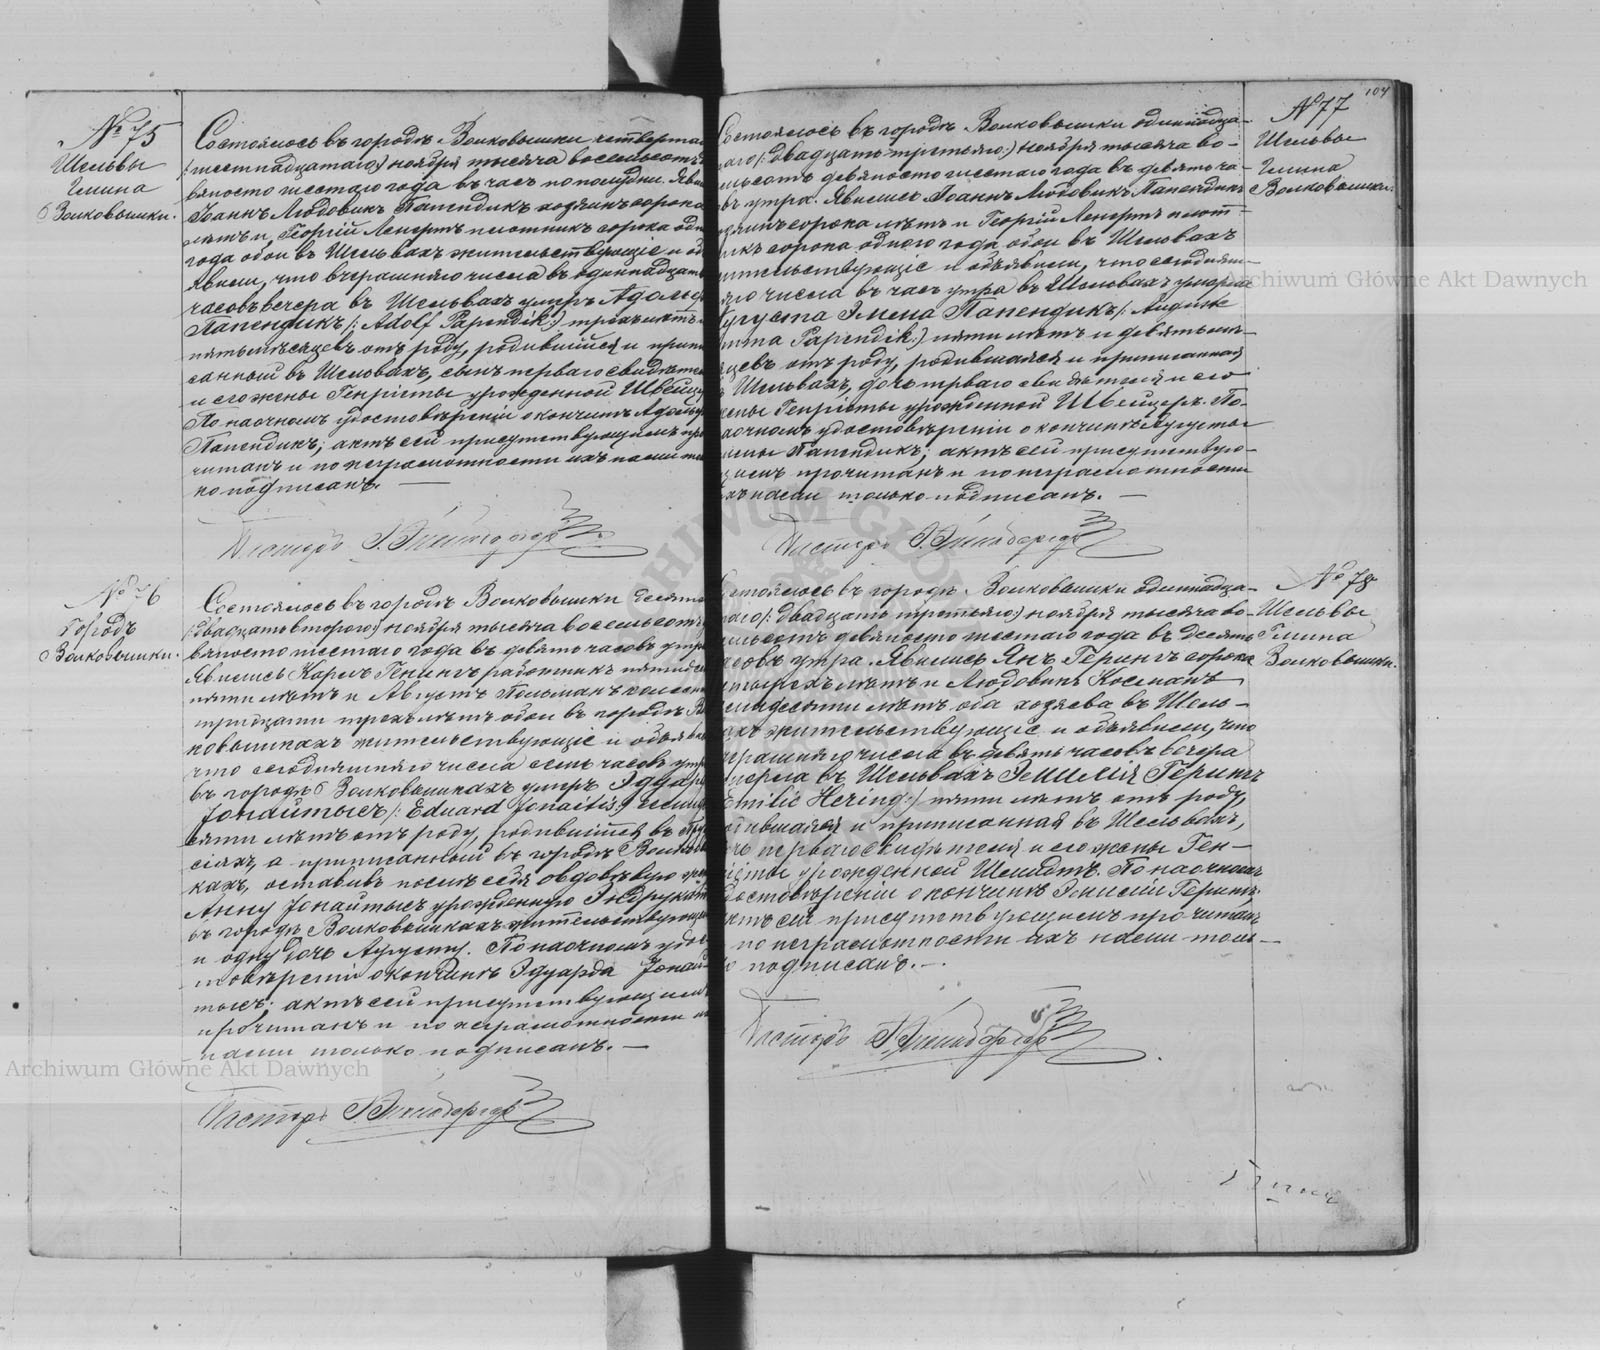 № 75
Шельвы
Гмина
Волковышки.
Состоялось въ городѣ Волковышки, четвертаго
/:шестнадцатаго:/ ноября тысяча восемьсотъ де-
вяносто шестаго года въ часъ по полудни. Яви
Іоаннъ Людовикъ Папендикъ хозяинъ сорока
лѣтъ и, Георгій Ленертъ плотникъ сорока одн
года обои въ Шельвахъ жительствующіе и об
явили, что вчерашняго числа въ одиннадцать
часовъ вечера въ Шельвахъ умеръ Адольф
Папендикъ /: Adolf Papendik:/ трехъ лѣтъ и
пять мѣсяцевъ отъ роду, родившійся и припи
санный въ Шельвахъ, сынъ перваго свидѣтеля
и его жены Генріеты урожденной Швейцер
По наочномъ удостовѣреніи о кончинѣ Адольфа
Папендикъ; актъ сей присутствующимъ про
читанъ и по неграмотности ихъ нами толь
ко подписанъ. —
Пасторъ
№ 76
Городъ
Волковышки.
Состоялось въ городѣ Волковышки десята
/:двадцать втораго:/ ноября тысяча восемьсотъ де
вяносто шестаго года въ девять часовъ утра
Явились Карлъ Генингъ работникъ пятидес
пяти лѣтъ и Августъ Польманъ
тридцати трехъ лѣтъ обои въ городѣ Вол
ковышкахъ жительствующіе и объявили
что сегодняшняго числа семь часовъ утра
въ городѣ Волковышкахъ умеръ Эдуардъ
Іонайтысъ /: Eduard Jonaitis:/ семидес
вяти лѣтъ отъ роду, родившійся въ Пру
сіяхъ, а приписанный въ городѣ Волковыш
кахъ, оставивъ послѣ себя овдовѣвую жену
Анну Іонайтысъ урожденную
въ городѣ Волковышкахъ жительствующую
и одну дочь Августу. По наочномъ удос
товѣреніи о кончинѣ Эдуарда Іонай-
тысъ; актъ сей присутствующимъ
прочитанъ и по неграмотности их
нами только подписанъ. —
Пасторъ
104
№ 77
Шельвы
Гмина
Волковышки.
Состоялось въ городѣ Волковышки одиннадца-
таго /: двадцать третьяго:/ ноября тысяча во-
семьсотъ девяносто шестаго года въ девять ча-
въ утра. Явились Іоаннъ Людовикъ Папендикъ
хозяинъ сорока лѣтъ и Георгій Ленертъ плот-
никъ сорока одного года обои въ Шельвахъ
жительствующіе и объявили, что сегодняш-
няго числа въ часъ утра въ Шельвахъ умерла
Августа Эмма Папендикъ /: Auguste
Emma Papendik:/ пяти лѣтъ и девять мѣ-
сяцевъ отъ роду, родившаяся и приписанная
Шельвахъ, дочь перваго свидѣтеля и его
жены Генріеты урожденной Швейцеръ. По-
наочномъ удостовѣреніи о кончинѣ Августы
Эммы Папендикъ; актъ сей присутствую-
щимъ прочитанъ и по неграмотности
ихъ нами только подписанъ. —
Пасторъ
№ 78
Шельвы
Гмина
Волковышки.
Состоялось въ городѣ Волковышки одиннадца-
таго /: двадцать третьяго:/ ноября тысяча во-
семьсотъ девяносто шестаго года въ десять
часовъ утра. Явились Янъ Герингъ сорока
четырехъ лѣтъ и Людовикъ Косманъ
семидесяти лѣтъ, оба хозяева въ Шель-
вахъ жительствующіе и объявили, что
вчерашняго числа въ девять часовъ вечера
умерла въ Шельвахъ Эмилія Герингъ
Emilie Hering:/ пяти лѣтъ отъ роду,
родившаяся и приписанная въ Шельвахъ,
дочь перваго свидѣтеля и его жены Ген-
ріеты урожденной Шмидтъ. По наочномъ
удостовѣреніи о кончинѣ Эмиліи Герингъ;
актъ сей присутствующимъ прочитанъ
и по неграмотности ихъ нами толь-
ко подписанъ. —
Пасторъ
Archiwum Główne Akt Dawnych
Archiwum Główne Akt Dawnych